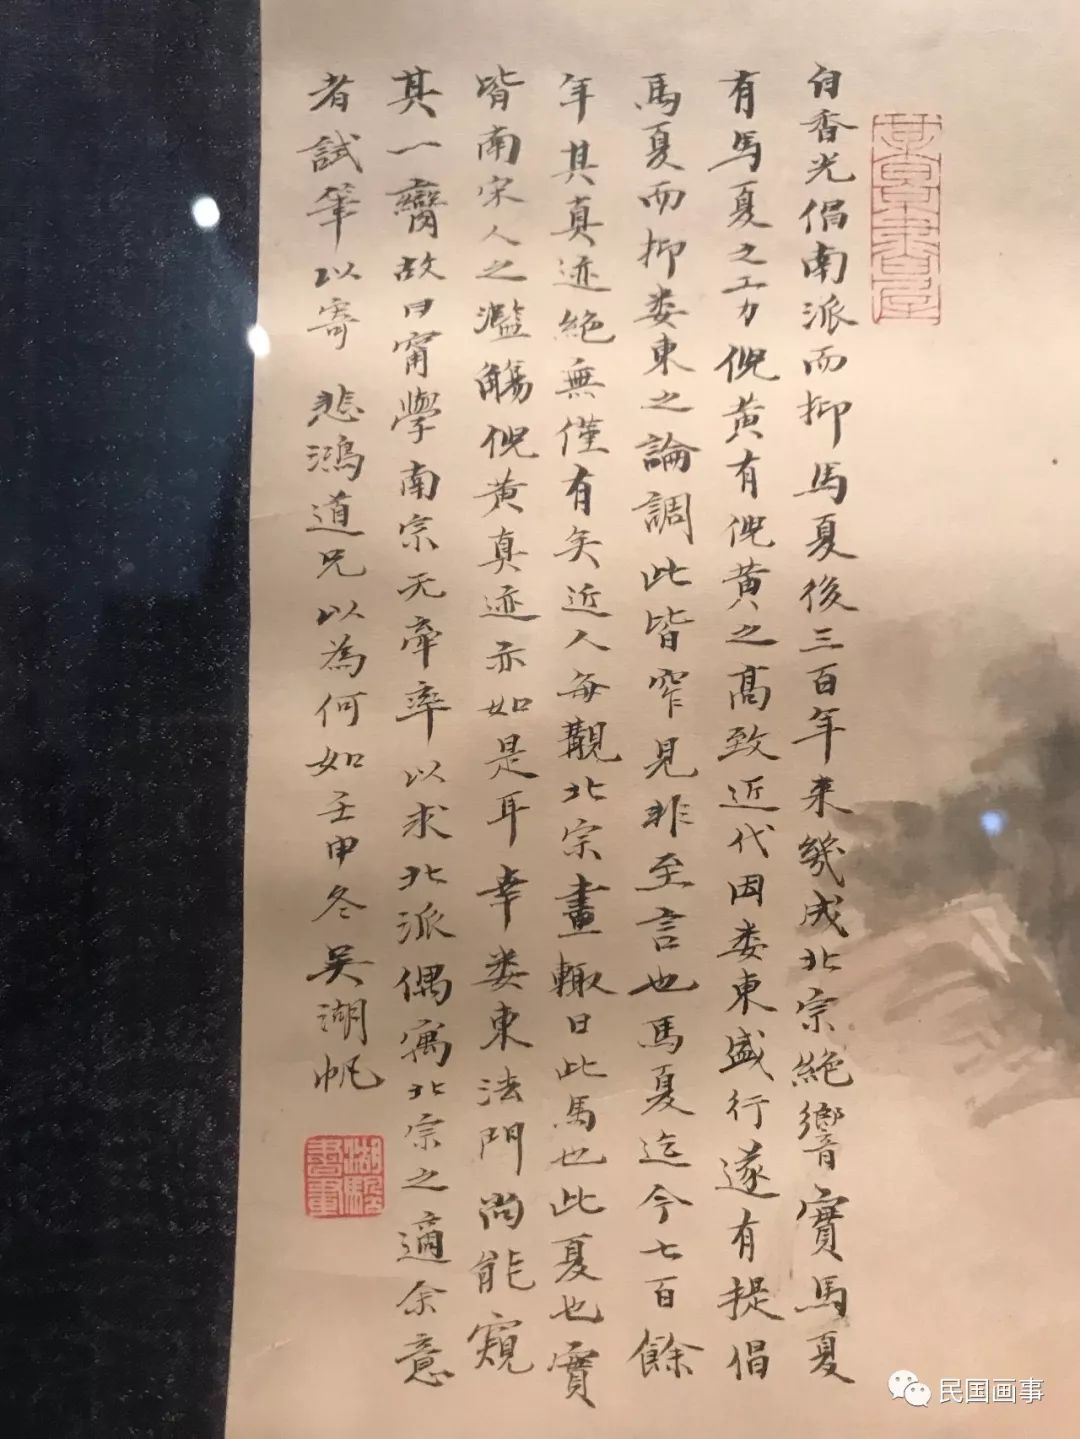 自香光倡南派而抑馬夏後三百年来幾成北宗絶響實馬夏
有馬夏之工力倪黄有倪黄之高致近代因婁東盛行遂有提倡
馬夏而抑婁東之論調此皆窄見非至言也馬夏迄今七百餘
年其真迹絶無僅有矣近人每觀北宗畫輙曰此馬也此夏也實
皆南宋人之濫觴倪黄真迹亦如是耳幸婁東法門尚能窺
其一臠故曰甯學南宗无牽率以求北派偶寓北宗之適余意
者試筆以寄 悲鴻道兄以為何如壬申冬吴湖帆
湖颿書畫
民国画事